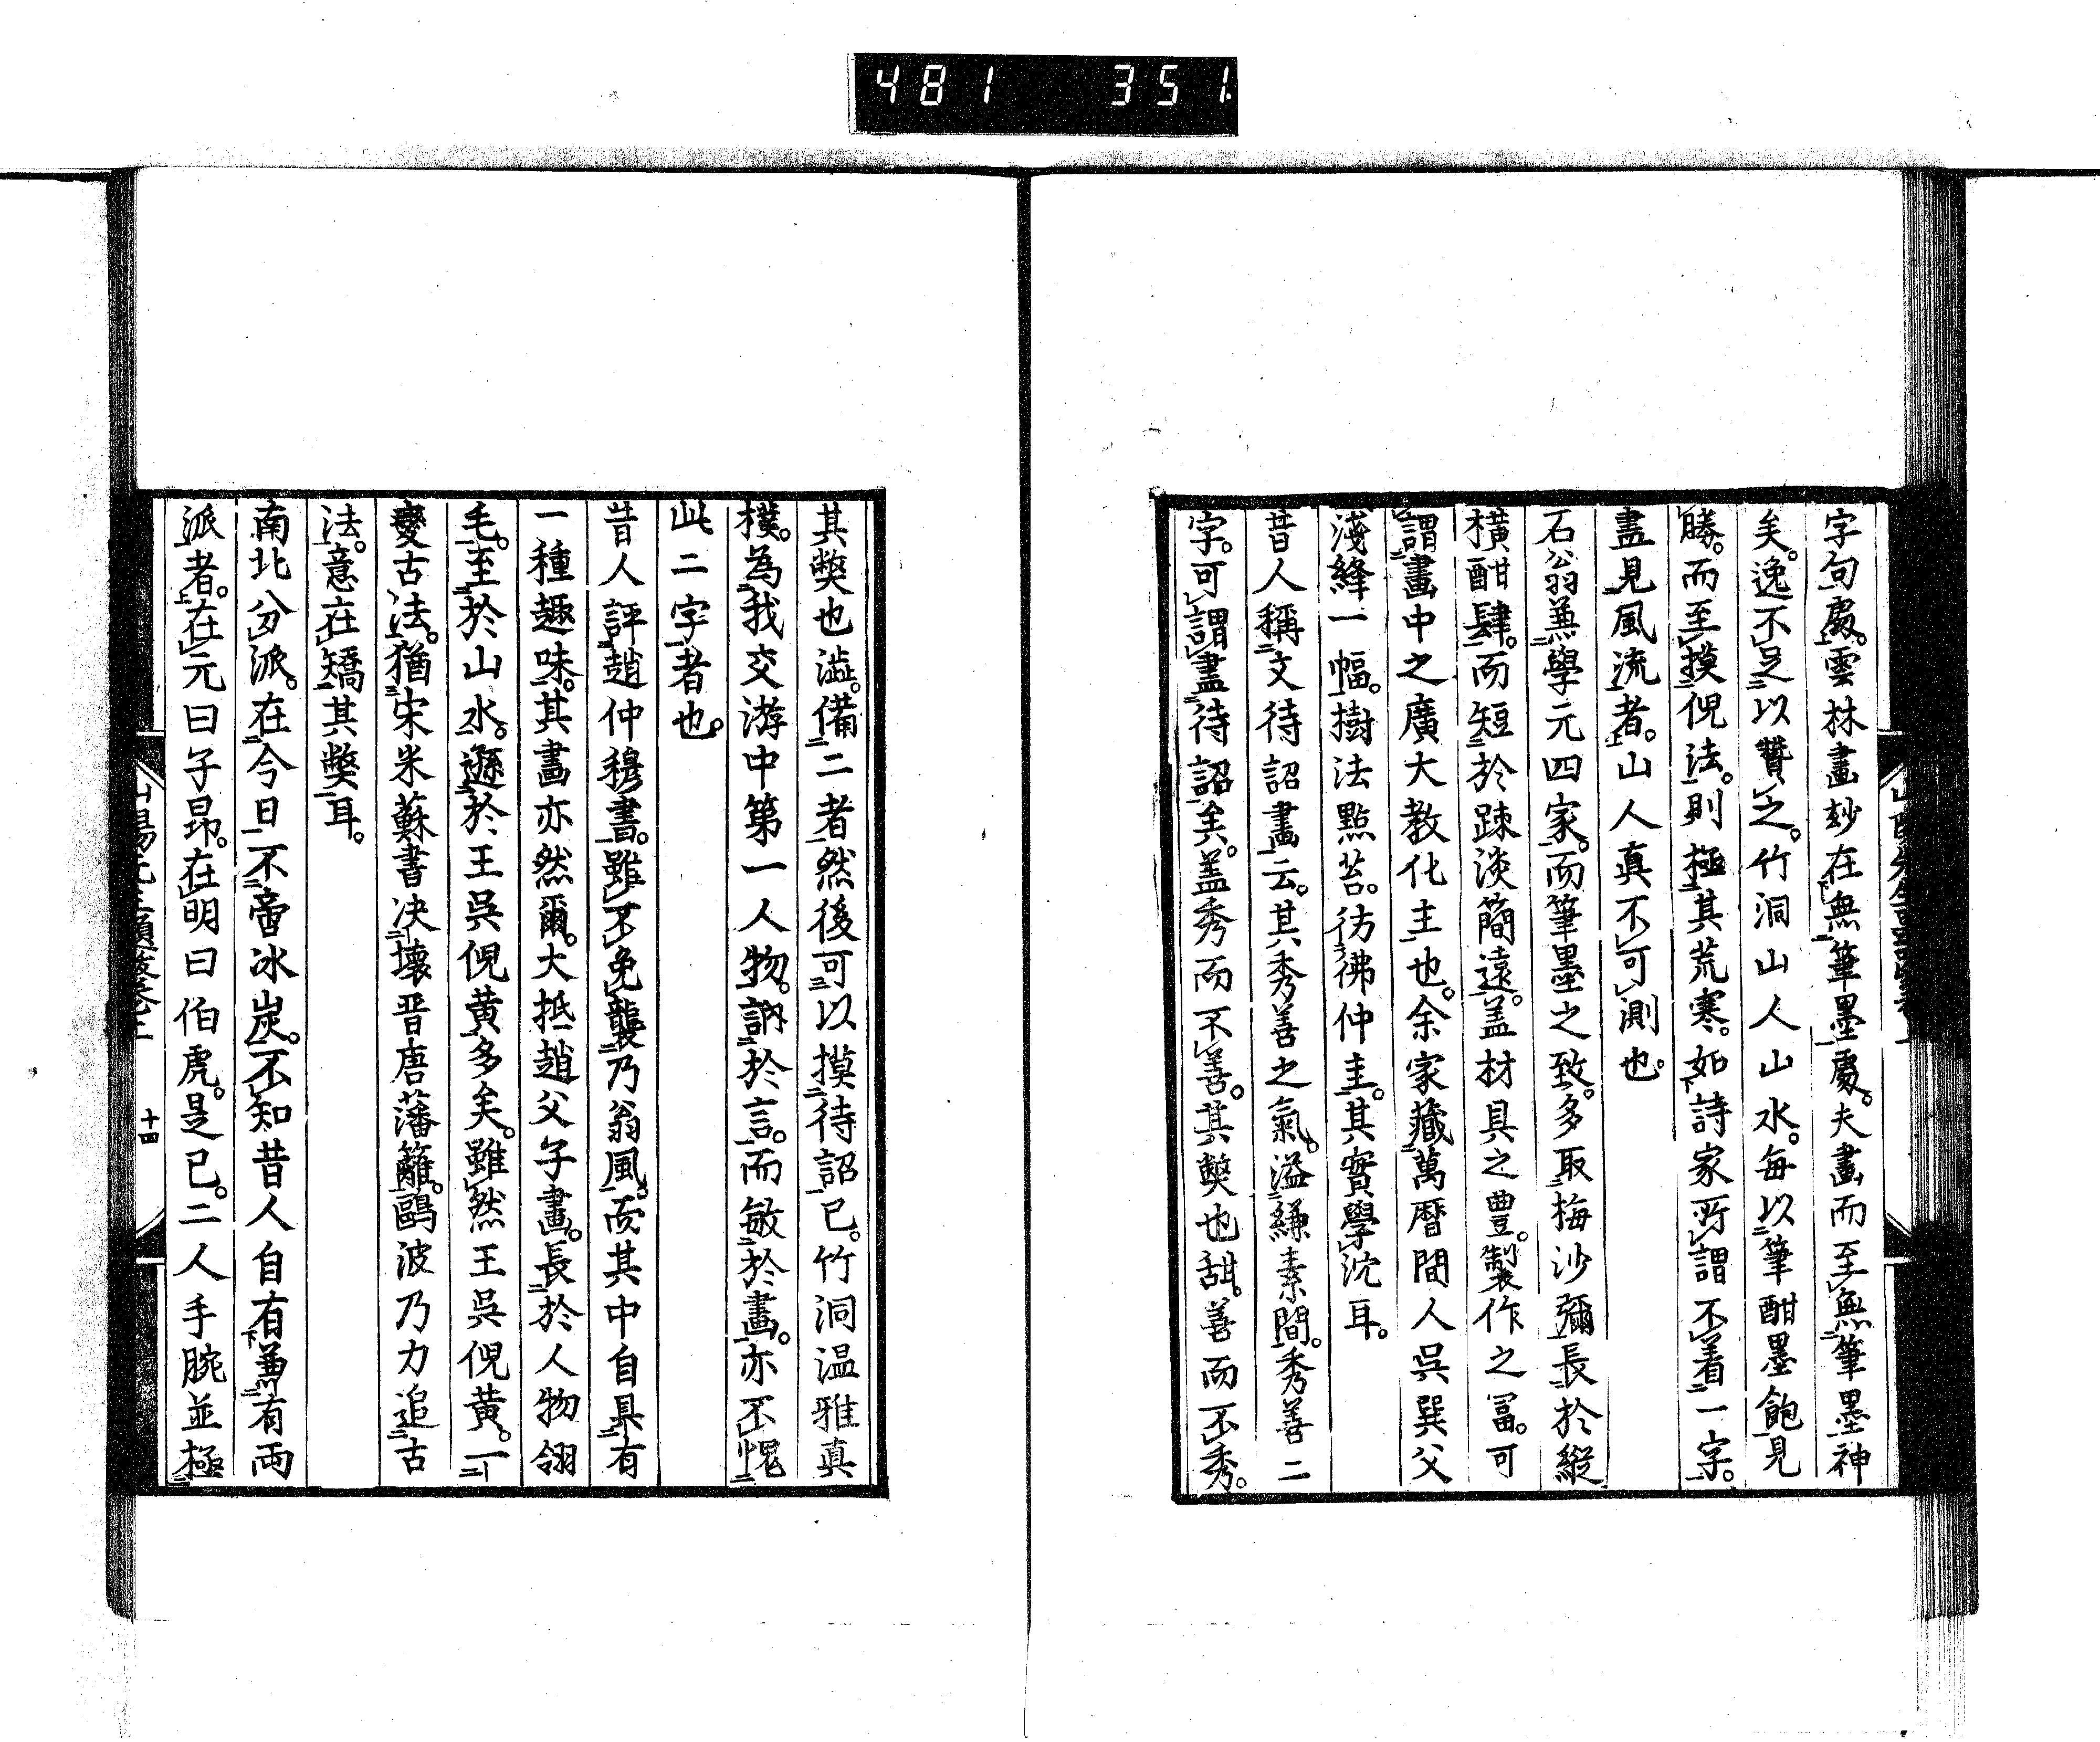 481 351
字句處。雲林畫妙在無筆墨處。夫畫而至無筆墨神
矣。逸不足以贊之。竹洞山人山水。每以筆酣墨飽見
勝。而至摸倪法。則極其荒寒。如詩家所謂不着一字。
盡見風流者。山人真不可測也。
石翁兼學元四家。而筆墨之致。多取梅沙彌長於縱
橫酣肆。而短於疎淡簡遠。盖材具之豊。製作之冨。可
謂畫中之廣大教化主也。余家藏萬曆間人呉巽父
淺絳一幅。樹法點苔。彷彿仲圭。其實學沈耳。
昔人稱文待詔畫云。其秀善之氣。溢縑素間。秀善二
字。可謂盡待詔矣。盖秀而不善。其獘也甜。善而不秀。
其獘也澁。備二者然後可以摸待詔已。竹洞温雅真
樸。為我交游中第一人物。訥於言。而敏於畫。亦不愧
此二字者也。
昔人評趙仲穆書。雖不免襲乃翁風。而其中自具有
一種趣味。其畫亦然爾。大抵趙父子畫。長於人物翎
毛。至於山水。遜於王呉倪黄多矣。雖然王呉倪黄。一
變古法。猶宋米蘇書决壊晋唐藩籬。鷗波乃力追古
法。意在矯其獘耳。
南北分派。在今日不啻冰炭。不知昔人自有兼有両
派者。在元曰子昂。在明曰伯虎。是已。二人手腕並極
十四